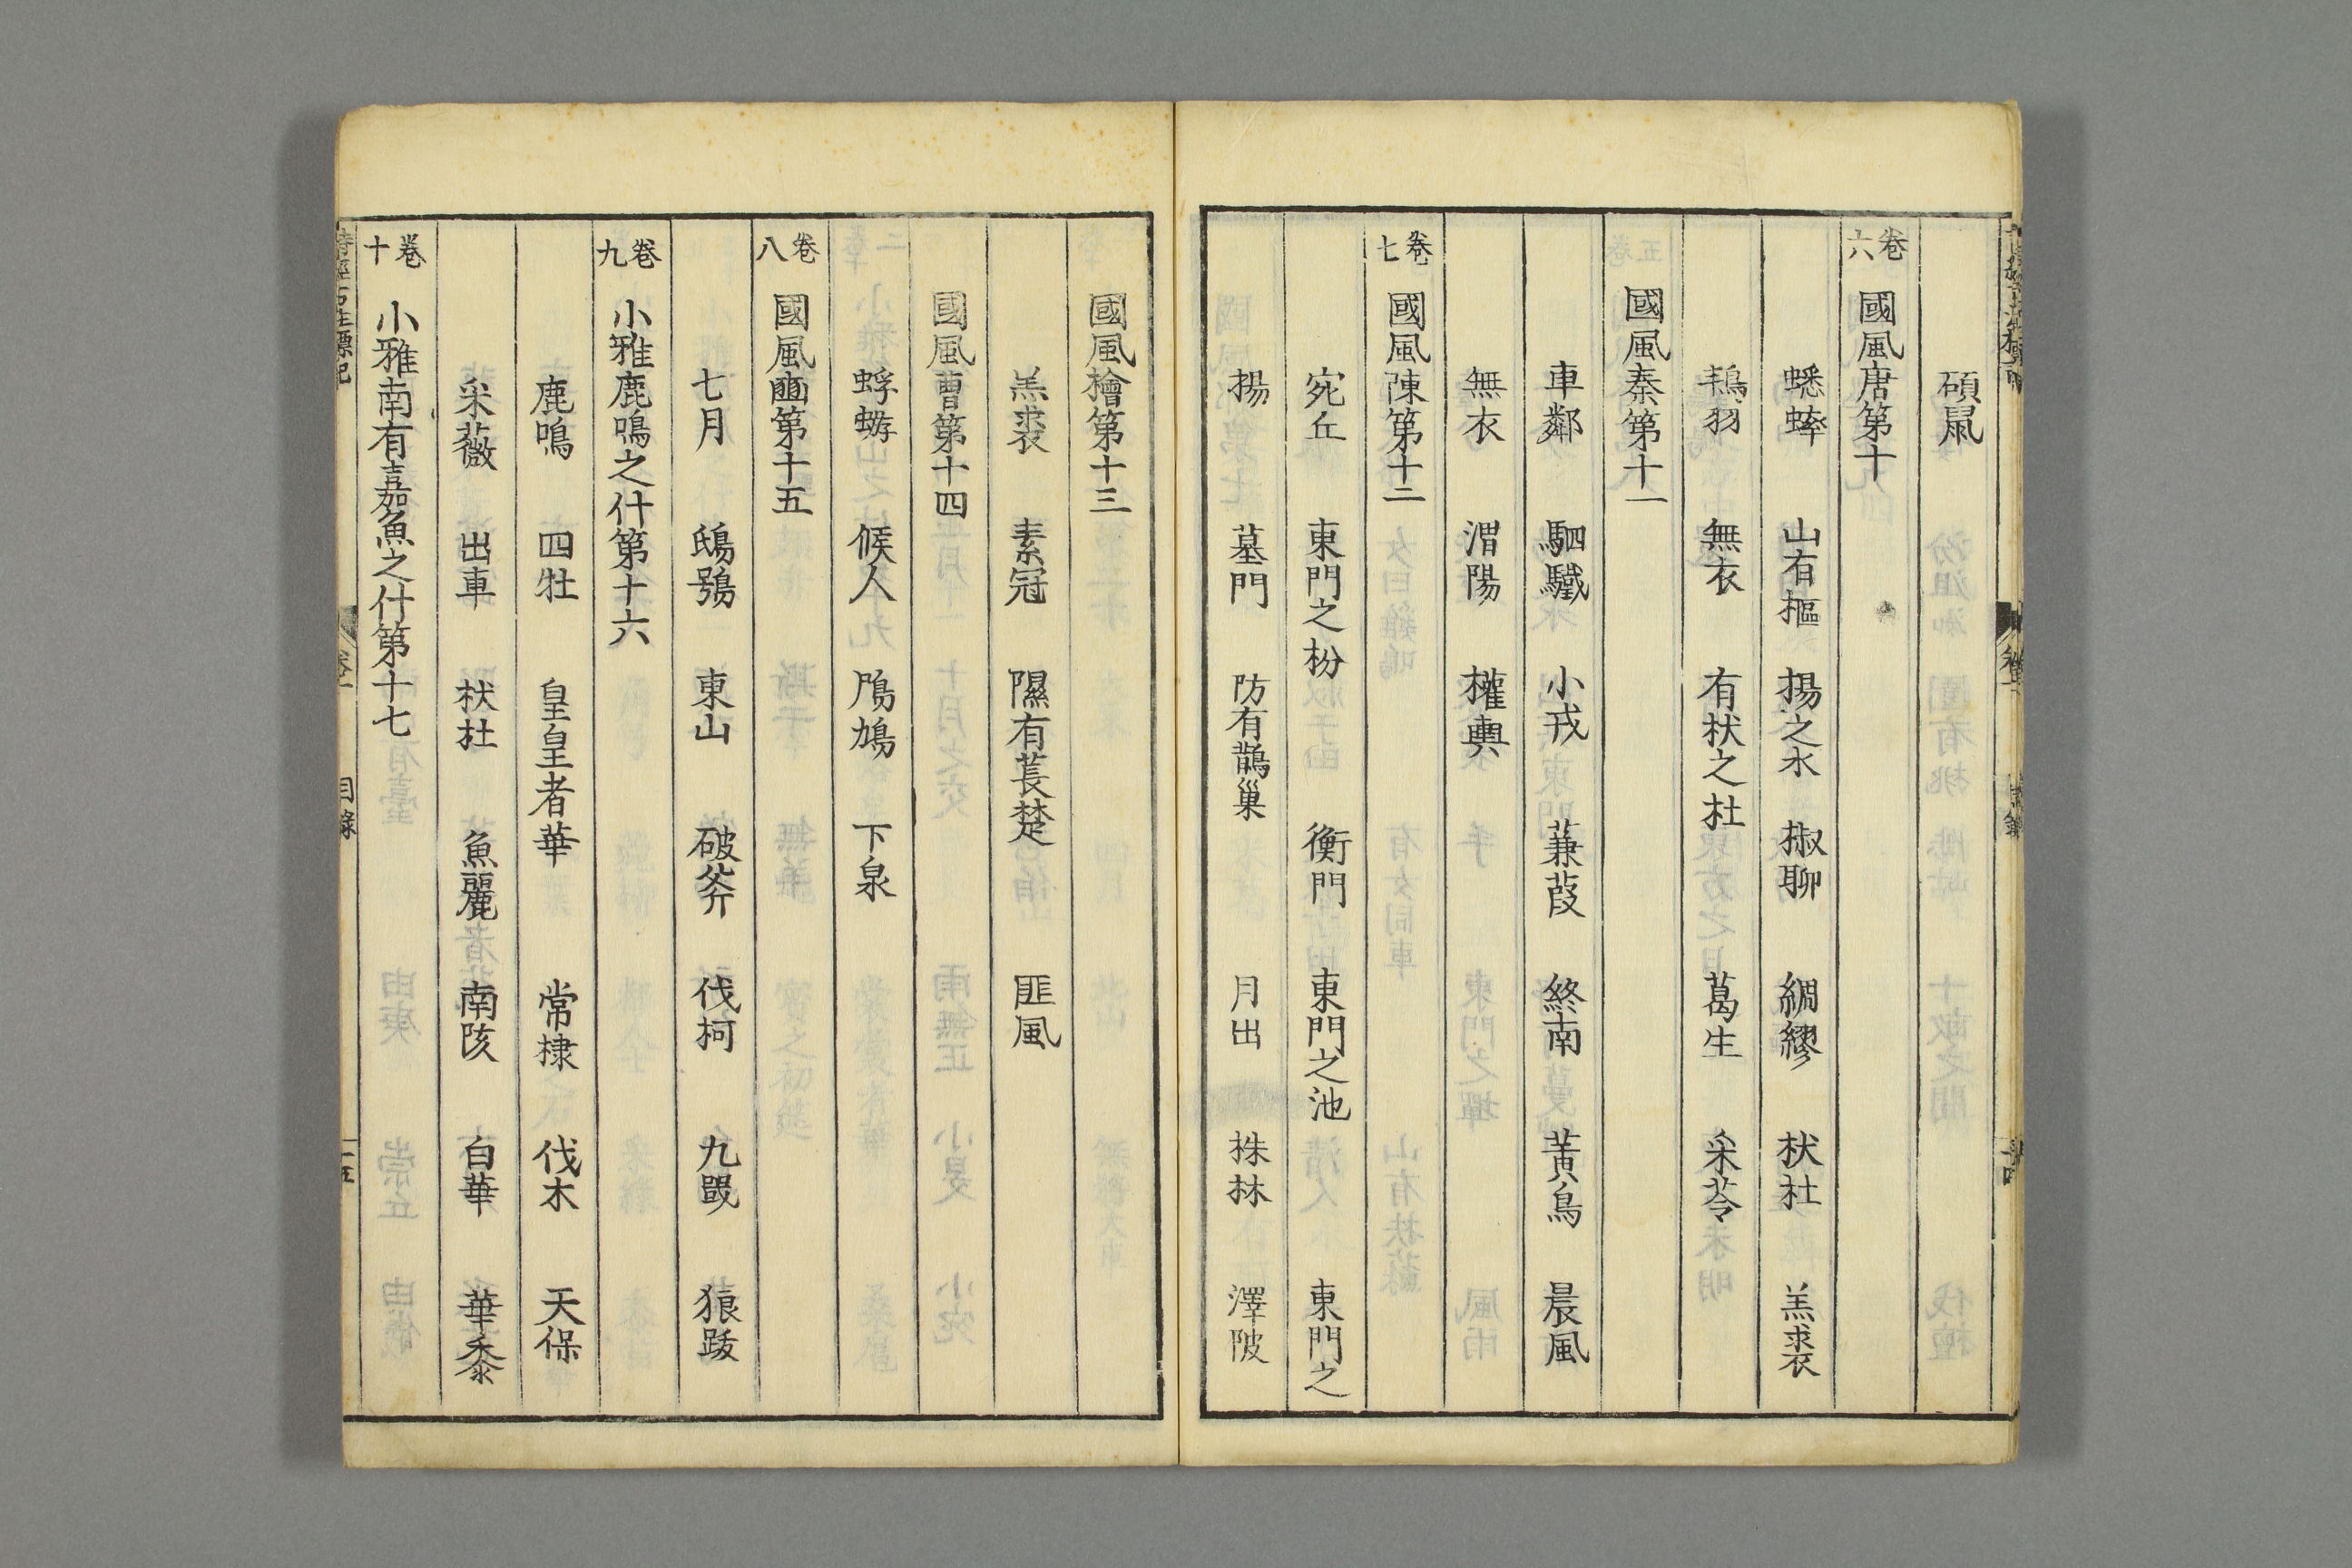 碩鼠
卷六　國風唐第十
蟋蟀　山有樞　揚之水　椒聊　綢繆　杕杜　羔裘
鴇羽　無衣　有杕之杜　葛生　采苓
國風秦第十一
車鄰　駟驖　小戎　蒹葭　終南　黃鳥　晨風
無衣　渭陽　權輿
卷七　國風陳第十二
宛丘　東門之枌　衡門　東門之池　東門之
揚　墓門　防有鵲巢　月出　株林　澤陂
國風檜第十三
羔裘　素冠　隰有萇楚　匪風
國風曹第十四
蜉蝣　候人　鳲鳩　下泉
卷八　國風豳第十五
七月　鴟鴞　東山　破斧　伐柯　九罭　狼跋
卷九　小雅鹿鳴之什第十六
鹿鳴　四牡　皇皇者華　常棣　伐木　天保
采薇　出車　杕杜　魚麗　南陔　白華　華黍
卷十　小雅南有嘉魚之什第十七
目錄